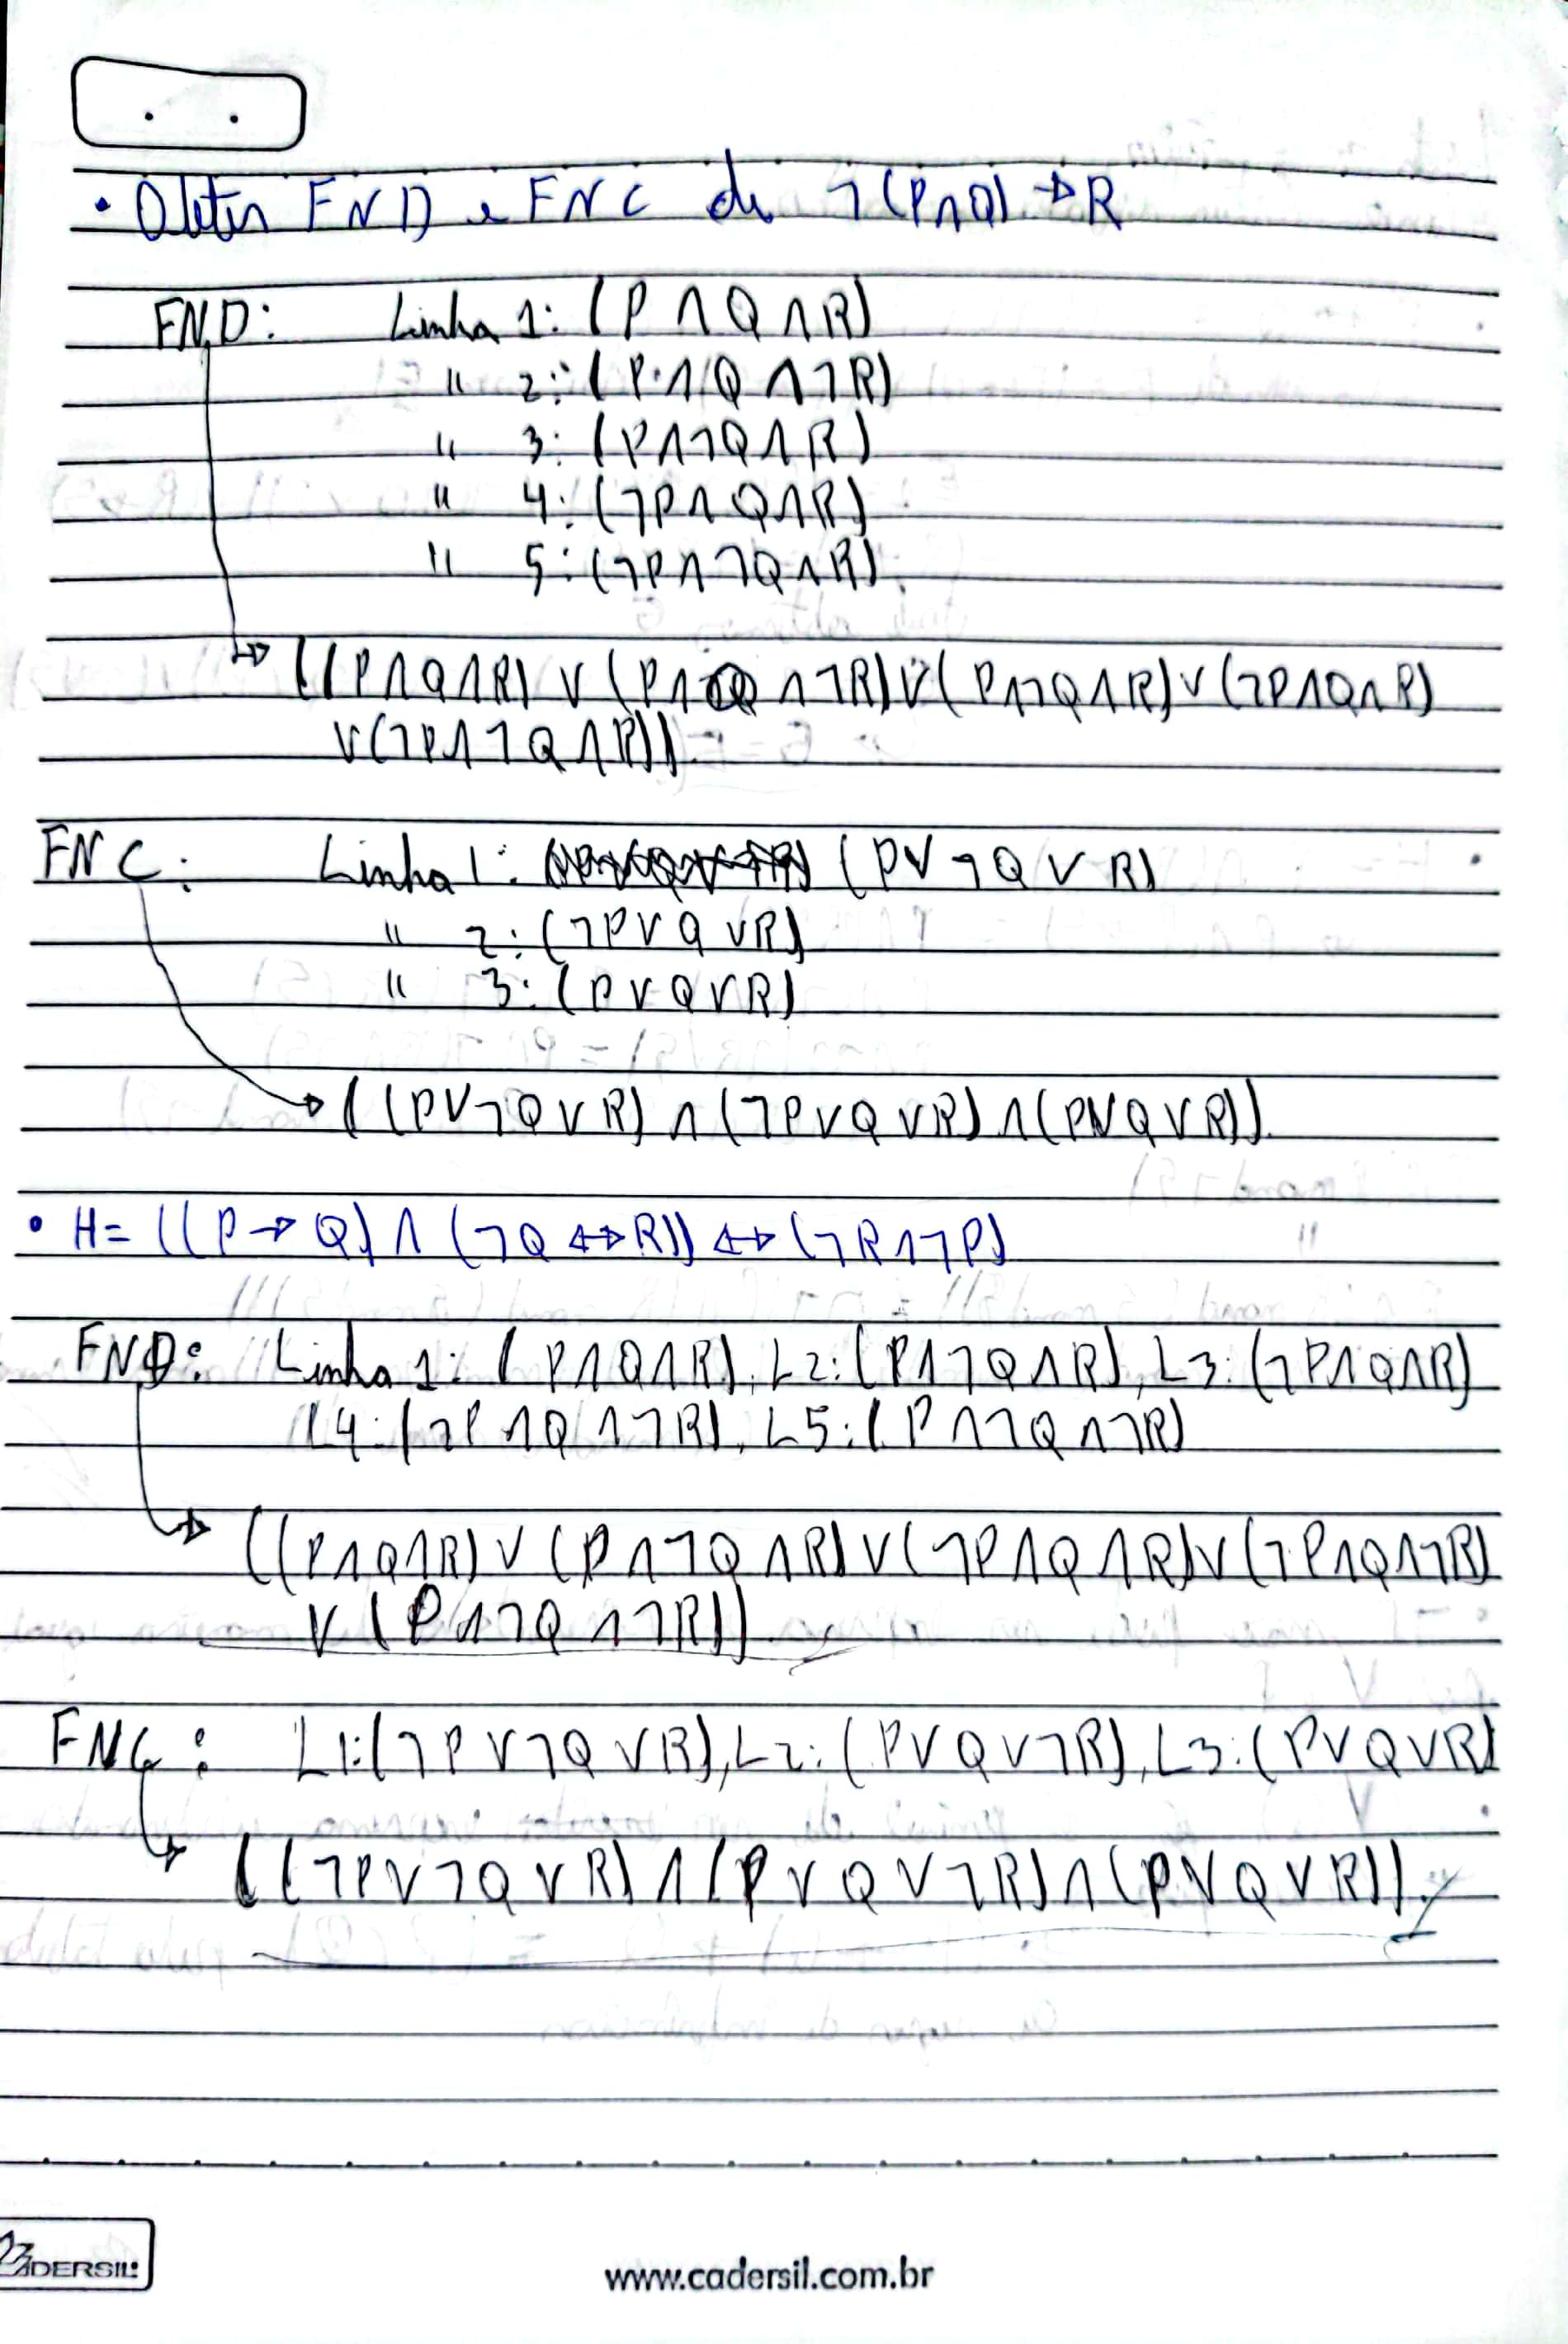 • Obter FND e FNC de ¬(P∧Q)→R
FND: Linha 1: (P ∧ Q ∧ R)
" 2: (P ∧ Q ∧ ¬R)
" 3: (P ∧ ¬Q ∧ R)
" 4: (¬P ∧ Q ∧ R)
" 5: (¬P ∧ ¬Q ∧ R).
→ ((P∧Q∧R) ∨ (P∧Q∧¬R) ∨ (P∧¬Q∧R) ∨ (¬P∧Q∧R)
∨ (¬P∧¬Q∧R)).
FNC: Linha 1: (P∨¬Q∨R)
" 2: (¬P∨Q∨R)
" 3: (P∨Q∨R)
→ ((P∨¬Q∨R) ∧ (¬P∨Q∨R) ∧ (P∨Q∨R)).
• H= ((P→Q) ∧ (¬Q↔R)) ↔ (¬R∧¬P)
FND: Linha 1: (P∧Q∧R), L2: (P∧¬Q∧R), L3: (¬P∧Q∧R)
L4: (¬P∧Q∧¬R), L5: (P∧¬Q∧¬R)
→ ((P∧Q∧R) ∨ (P∧¬Q∧R) ∨ (¬P∧Q∧R) ∨ (¬P∧Q∧¬R)
∨ (P∧¬Q∧¬R))
FNC: L1: (¬P∨¬Q∨R), L2: (P∨Q∨¬R), L3: (P∨Q∨R)
→ ((¬P∨¬Q∨R) ∧ (P∨Q∨¬R) ∧ (P∨Q∨R)).
www.cadersil.com.br